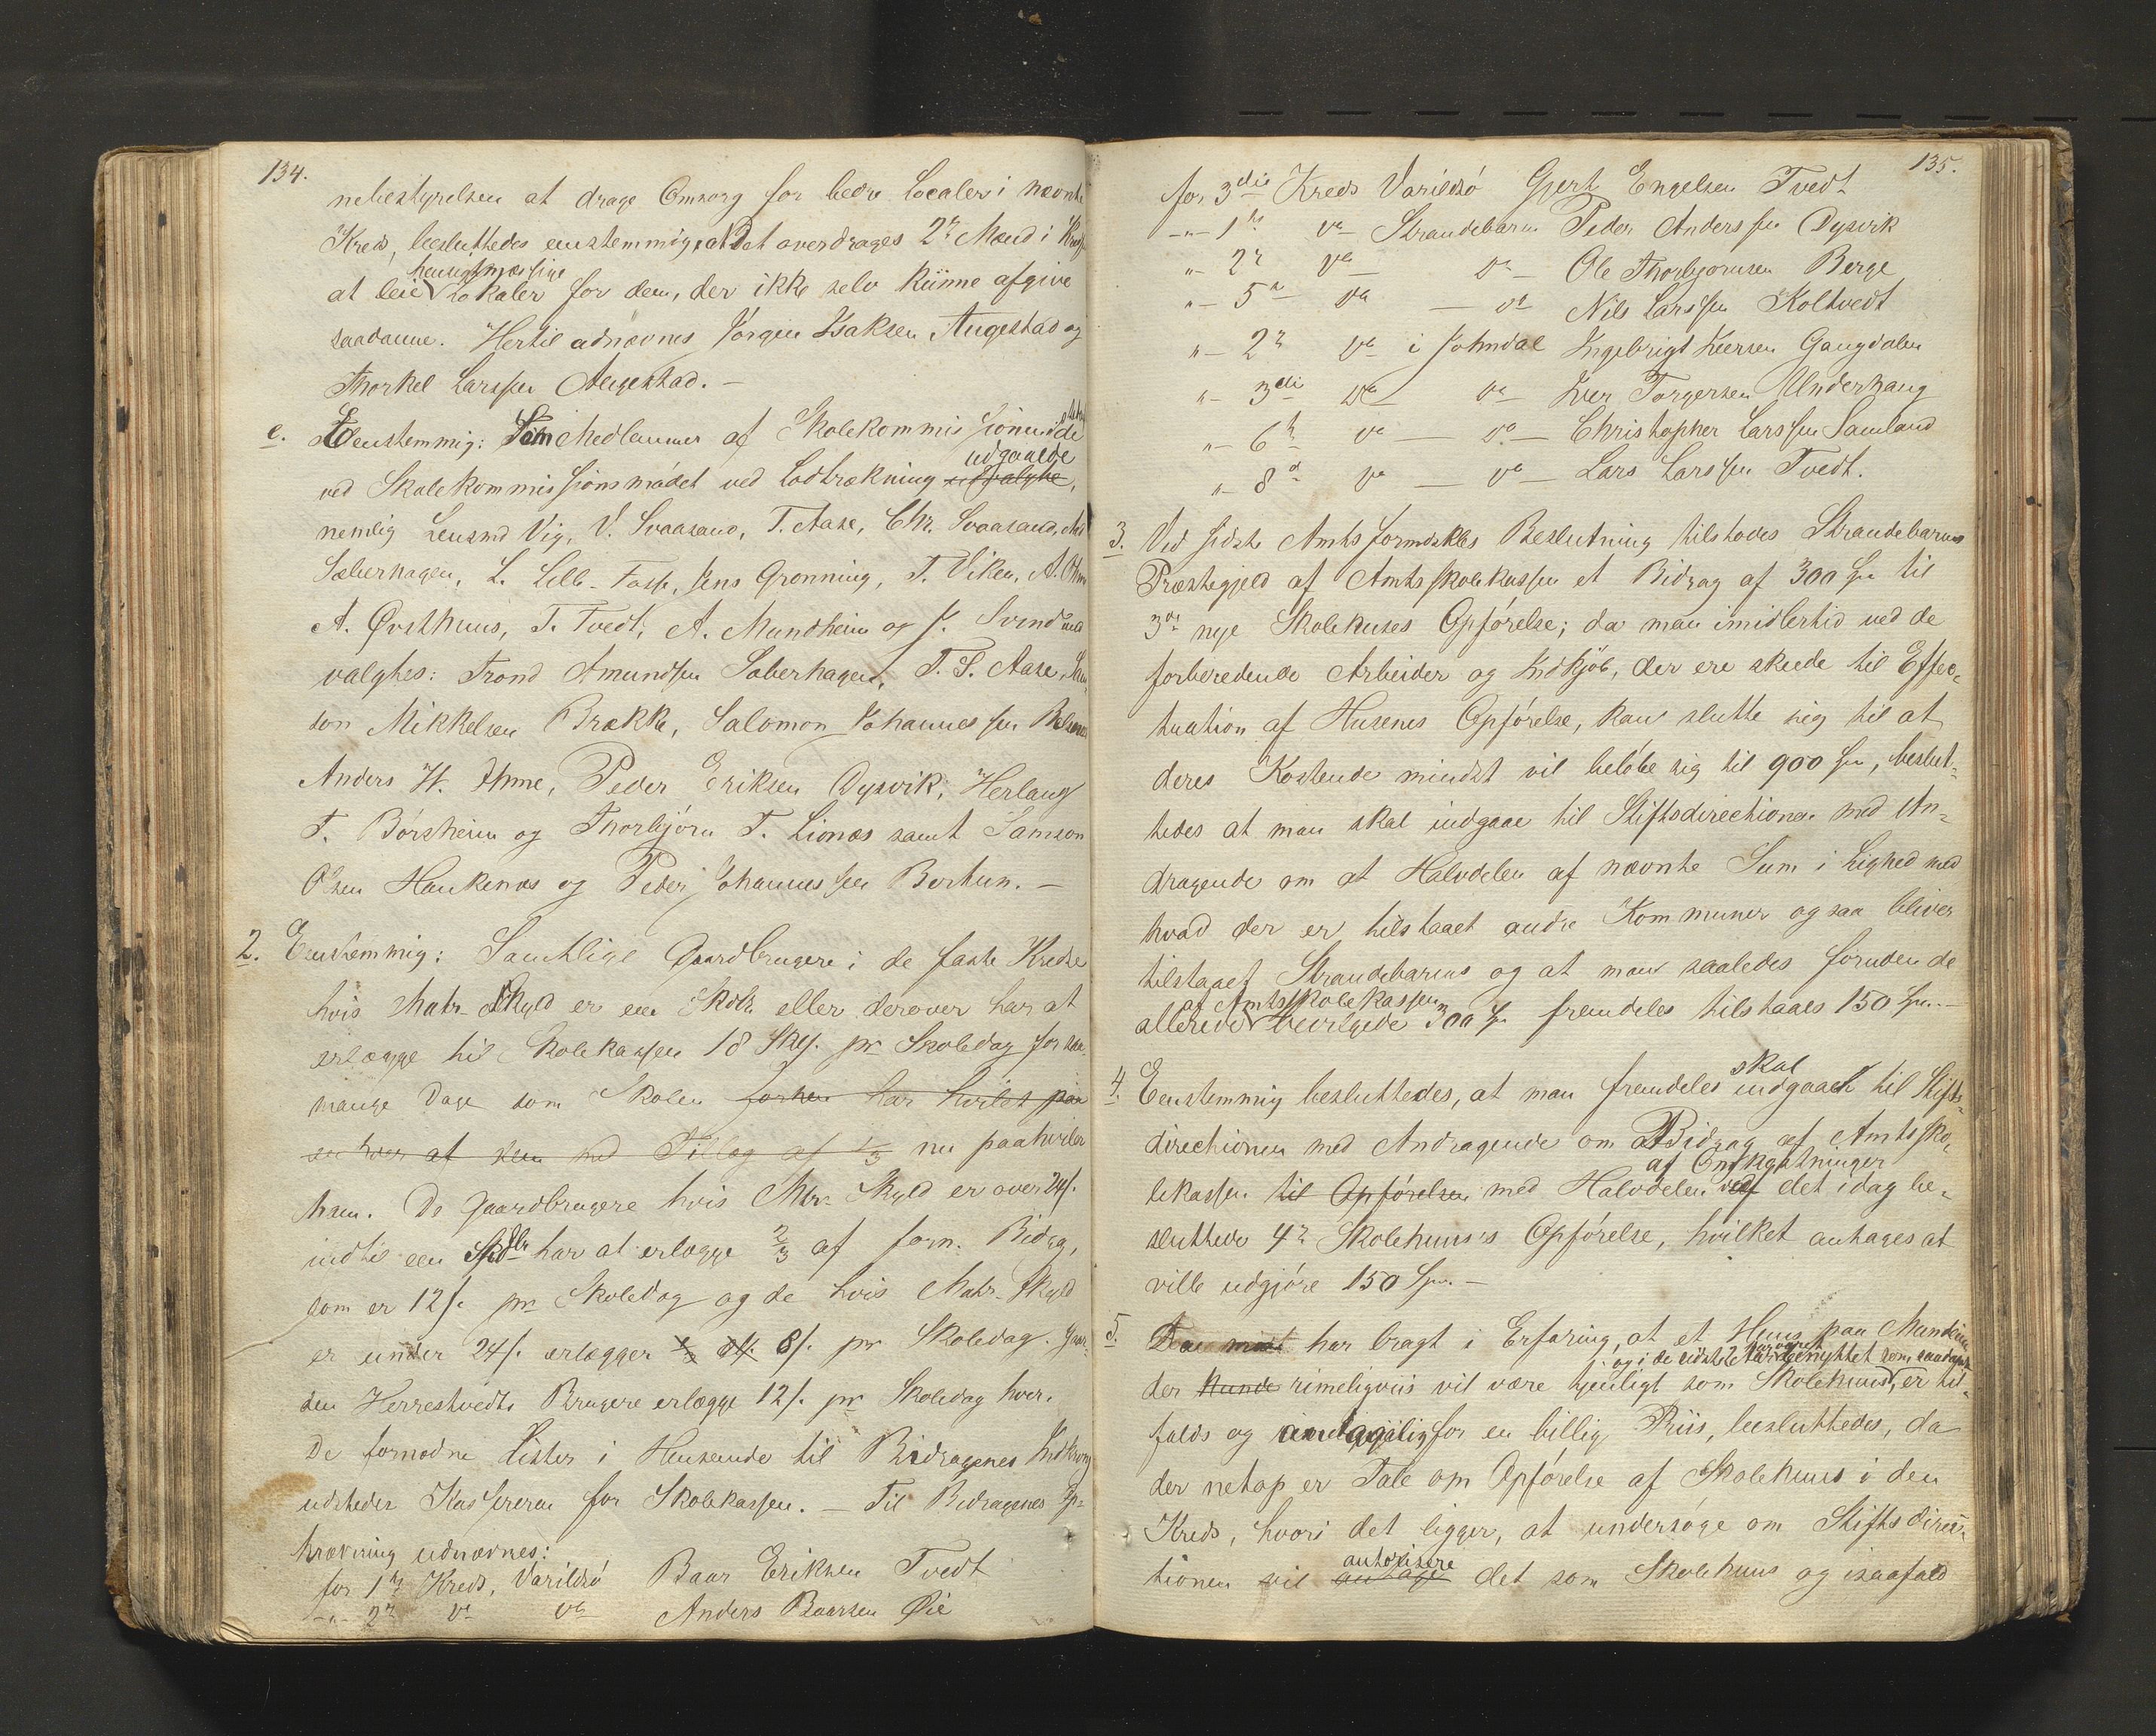 134.
nebestyrelsen at drage Omsorg for bedre Localer i nævnte
Kreds, besluttedes eenstemmig, at Det overdrages 2de Mænd i Kredsen
hensigtmæssige
at leie Lokaler for dem, der ikke selv kunne afgive
saadanne. Hertil udnævnes Jørgen Isaksen Augestad og
Thorkel Larssen Augestad. –
e. Eenstemmig: Som Medlemmer af Skolekommissionen i de
udgaaede
ved Skolekommissionsmødet ved Lodtrækning udvalgte,
nemlig Lensmd Vig, V. Svaasand, T. Aase, Chr. Svaasand,
Sæberhagen, L. Lille-Fosse, Jens Grønning, T. Viken, A.
A. Øvsthuus, T. Tvedt, A. Mundheim og J.
valgtes: Trond Amundsen Sæberhagen, T. S. Aase, Sam-
son Mikkelsen Brække, Salomon Johannessen
Anders H. Ihme, Peder Eriksen Dysvik, Herlaug
T. Børsheim og Thorbjørn T. Lionæs samt Samson
Olsen Haukenæs og Peder Johannessen Bertun. –
2. Eenstemmig: Samtlige Gaardbrugere i de faste Kredse
hvis Matr. Skyld er een Skdlr. eller derover har at
erlægge til Skolekassen 18 Sk. pr Skoledag for saa
mange Dage som Skolen forhen har hvilet paa
en hver at dem med Tillæg af 1/3 nu paahviler
ham. De Gaardbrugere hvis Mtr. Skyld er over 24 s.
indtil een Skdlr har at erlægge 2/3 af forn. Bidrag,
som er 12 s. pr Skoledag og de hvis Matr. Skyld
er under 24 s. erlægger 8 s. pr Skoledag. Gaar-
den Herrestvedts Brugere erlægge 12 s. pr Skoledag hver.
De fornødne Lister i Henseende til Bidragenes Indkrævning
udsteder Kassereren for Skolekassen. – Til Bidragenes Op-
krævning udnævnes:
for 1ste Kreds, Varildsø Baar Eriksen Tvedt
-"- 2n do do Anders Baarsen Øie
135.
for 3die Kreds Varildsø Gjert Engelsen Tvedt
-"- 1ste do Strandebarm Peder Anderssen Dysvik
"- 2n do do – Ole Thorbjørnsen Berge
"- 5te do – do Nils Larssen Koltvedt
"- 2n do i Johndal Ingebrigt Iversen Gangdalen
"- 3die do do Iver Torgersen Underhaug
"- 6te do – do – Christopher Larssen Samland
"- 8de do – do – Lars Larssen Tvedt.
3. Ved sidste Amtsformdskbs Beslutning tilstodes Strandebarms
Præstegjeld af Amtsskolekassen et Bidrag af 300 Spd til
3de nye Skolehuses Opførelse; da man imidlertid ved de
forberedende Arbeider og Indkjøb, der ere skeede til Effec-
tuation af Husenes Opførelse, kan slutte sig til at
deres Kostende mindst vil beløbe sig til 900 Spd, beslut-
tedes at man skal indgaae til Stiftsdirectionen med An-
dragende om at Halvdelen af nævnte Sum i Lighed med
hvad der er tilstaaet andre Kommuner ogsaa bliver
tilstaaet Strandebarms og at man saaledes foruden de
af Amtsskolekassen
allerede bevilgede 300 Spd fremdeles tilstaaes 150 Spd. –
skal
4. Eenstemmig besluttedes, at man fremdeles indgaaer til Stifts-
directionen med Andragende om Bidrag af Amtssko-
af Omkostninger
lekassen til Opførelsen med Halvdelen ved det idag be-
sluttede 4de Skolehuus's Opførelse, hvilket antages at
ville udgjøre 150 Spd. –
5. Da man har bragt i Erfaring, at et Huus paa Mundheim
og i de sidste Aar har været benyttet som saadant
der kunde rimeligviis vil være tjenligt som Skolehuus, er til-
falds og antagelig for en billig Priis, besluttedes, da
der netop er Tale om Opførelse af Skolehuus i den
Kreds, hvori det ligger, at undersøge om Stiftsdirec-
autorisere
tionen vil antage det som Skolehuus og isaafald